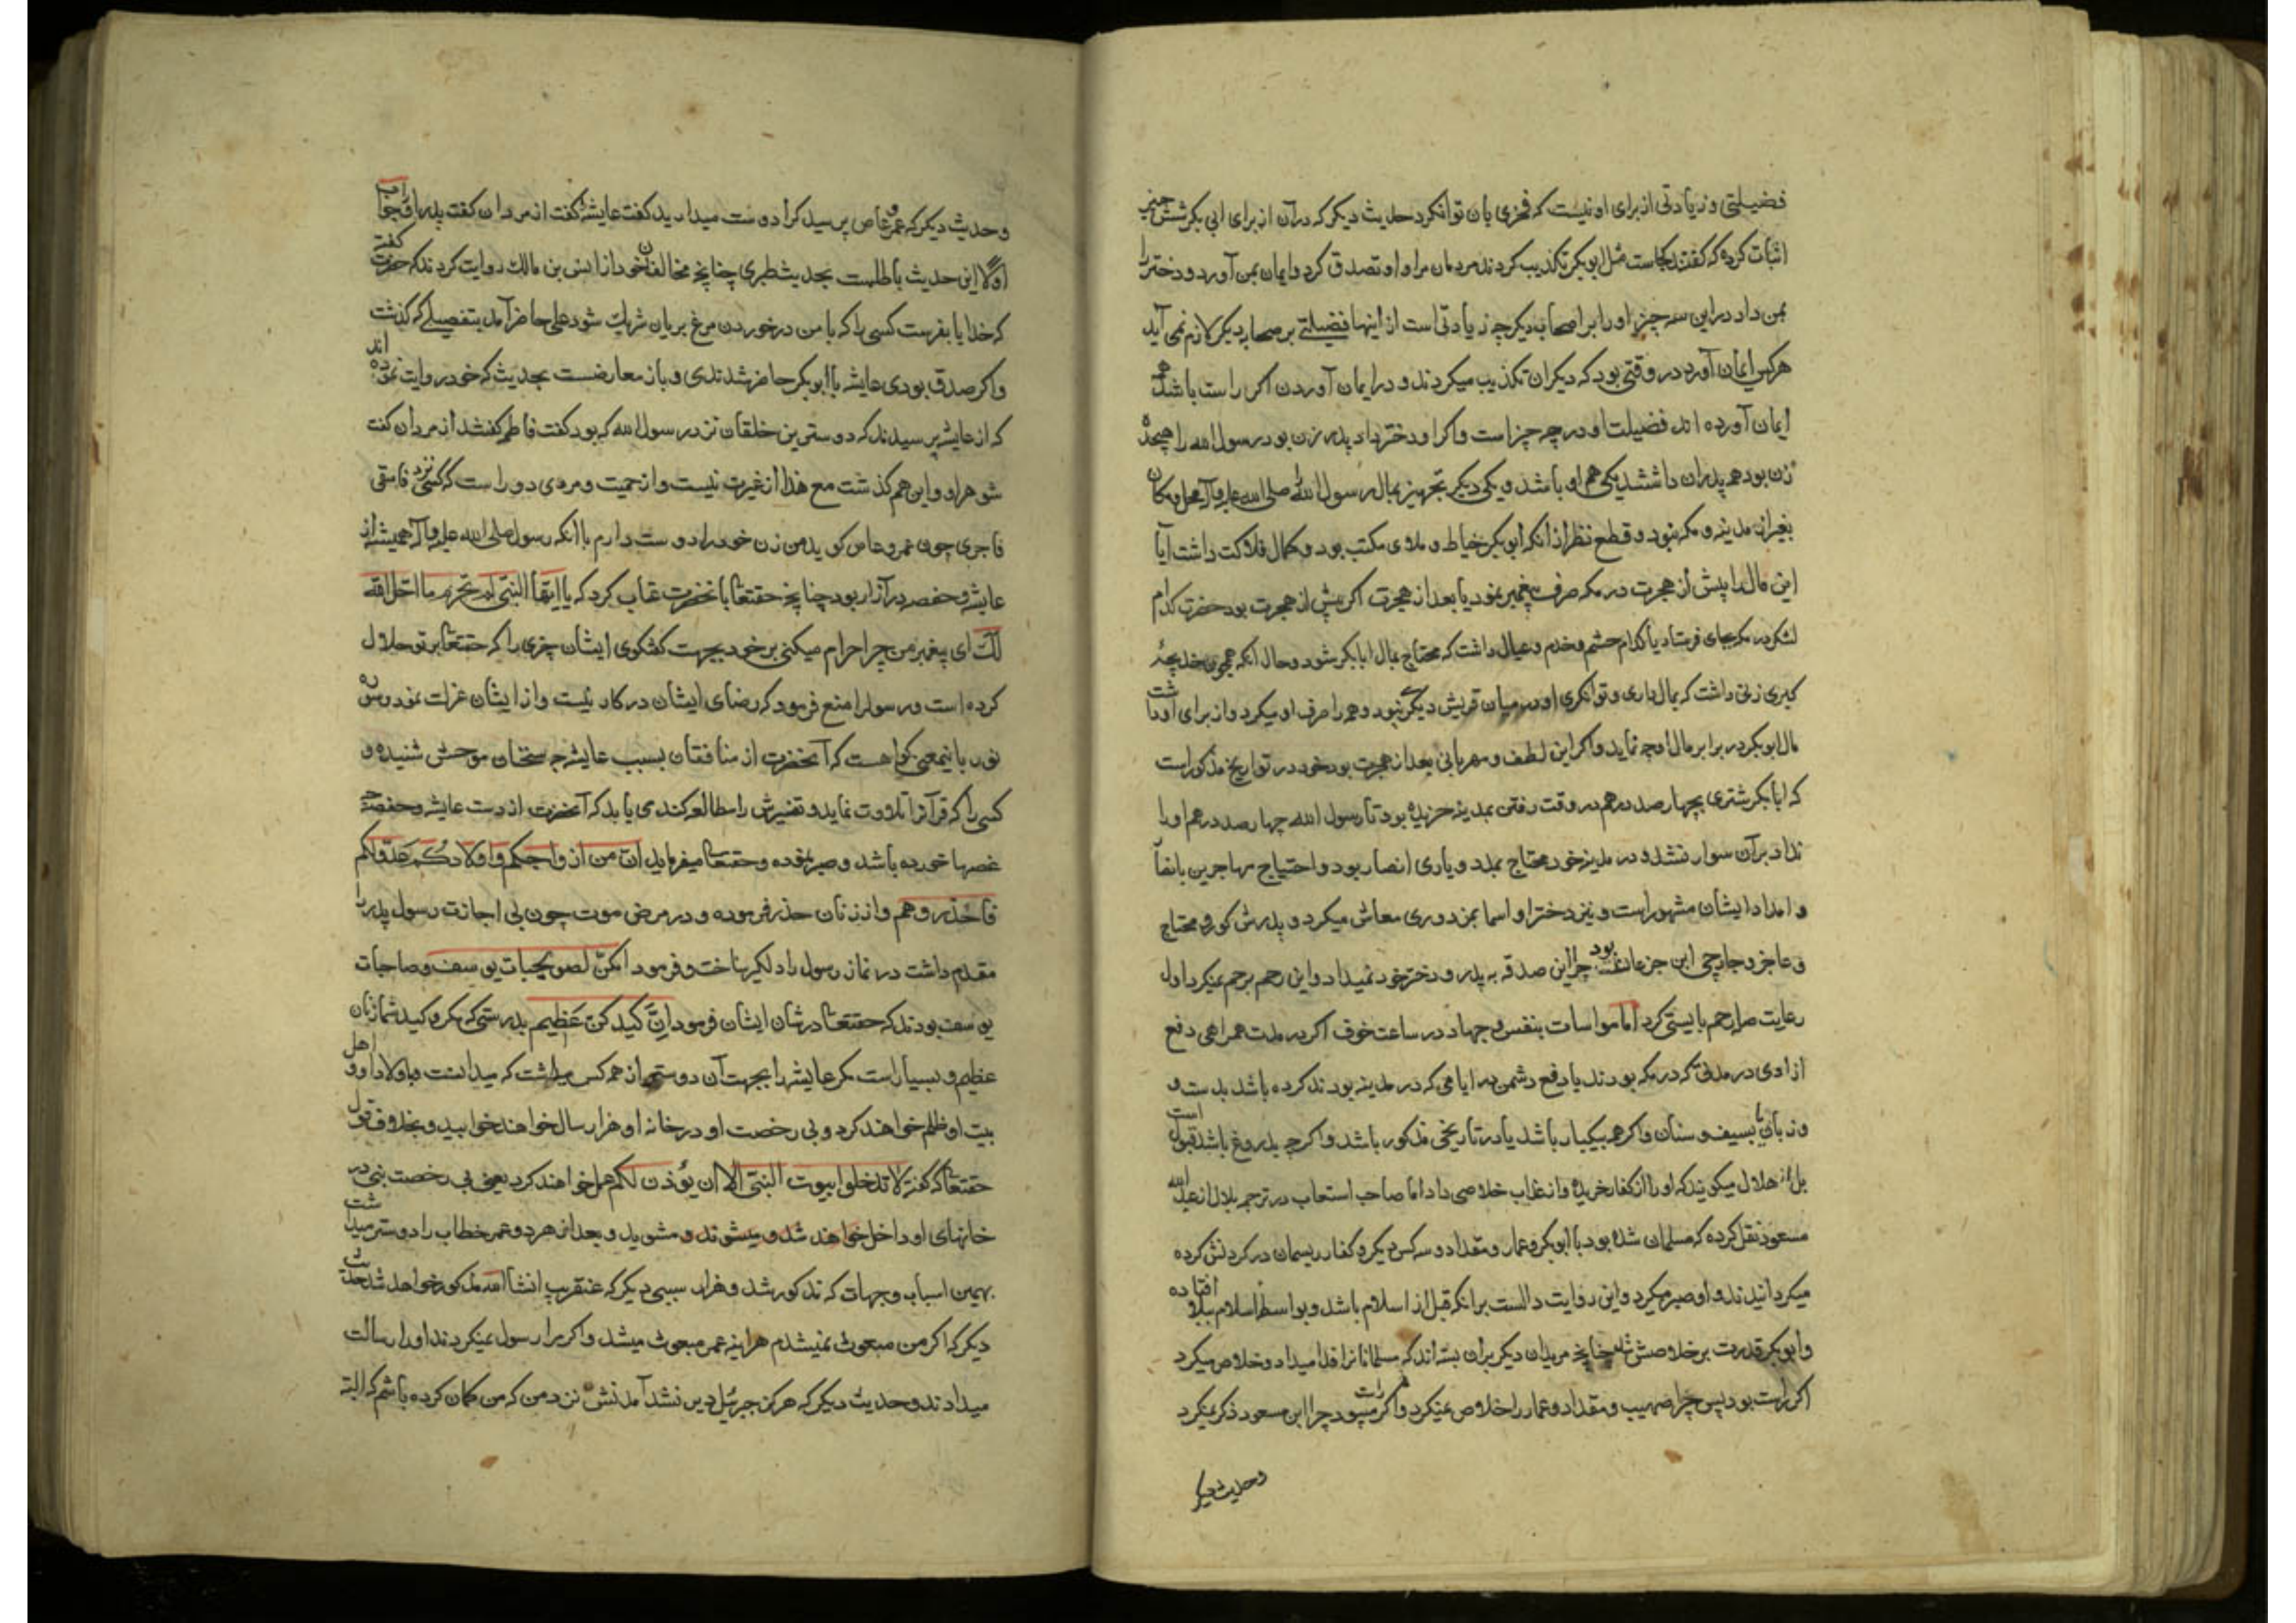 فضیلتی و زیادتی از برای او نیست که فخری بان توانکرد حدیث دیگر که در آن از برای ابی بکر شش چیز
اثبات کرده که گفتند کجاست مثل ابوبکر تکذیب کردند مردمان مرا و او تصدیق کرد و ایمان بمن آورد و دختر را
بمن داد در این سه چیز او را بر اصحاب دیگر چه زیادتی است از اینها فضیلتے بر صحابه دیگر لازم نمی آید
هر کس ایمان آورد در وقتی بود که دیگران تکذیب میکردند و در ایمان آوردن اگر راست باشد همه
ایمان آورده اند فضیلت او در چه چیز است و اگر او دختر داد پدر زن بود رسول الله را هیجده
زن بود همه پدران داشتند یکی هم او باشد و یکی دیگر تجهیز بمال رسول الله صلی الله علیه و آله محل و مکان
بغیر از مدینه و مکه نبود و قطع نظر از انکه ابوبکر خیاط و ملای مکتب بود و کمال فلاکت داشت آیا
این مال را پیش از هجرت در مکه صرف پیغمبر نمود یا بعد از هجرت اگر پیش از هجرت بود حضرت کدام
لشکر در مکه بجای فرستاد یا کدام حشم و خدم و عیال داشت که محتاج بمال ابابکر شود و حال آنکه همچون خدیجه
کبری زنی داشت که بمال داری و توانگری او در میان قریش دیگری نبود و همه را صرف او میکرد و از برای او داشت
مال ابوبکر در برابر مال او چه نماید و اگر این لطف و مهربانی بعد از هجرت بود خود در تواریخ مذکور است
که ابابکر شتری بچهارصد درهم در وقت رفتن بمدینه خریده بود تا رسول الله چهارصد درهم او را
نداد بر آن سوار نشد و در مدینه خود محتاج بمدد و یاری انصار بود و احتیاج مهاجرین بانصار
و امداد ایشان مشهور است و نیز دختر او اسما بمزدوری معاش میکرد و پدرش کور و محتاج
و عاجز و جارچی ابن جزعان بود چرا این صدقه به پدر و دختر خود نمیداد و این رحم برحم نمیکرد اول
رعایت صله رحم بایستی کرد اما مواسات بنفس و جهاد در ساعت خوف اگر در مدت همراهی دفع
ازادی در مدتی که در مکه بودند یا دفع دشمن در ایامی که در مدینه بودند کرده باشد بدست و
و زبان یا بسیف و سنان و اگر همه بیکبار باشد یا در تاریخی مذکور باشد و اگر چه بدروغ باشد قبول است
بلال میگویند که او را از کفار خریده و از عذاب خلاصی داد اما صاحب استعاب در ترجمه بلال از عبد الله
مسعود نقل کرده که مسلمان شده بود با ابوبکر و عمار و مقداد و سه کس دیگر و کفار ریسمان در گردنش کرده
میگردانیدند و او صبر میکرد و این روایت دالست بر انکه قبل از اسلام باشد و بواسطه اسلام ببلا افتاده
و ابوبکر قدرت بر خلاصش چنانچه مریدان دیگر بران بسته اند که مسلمانانرا فدا میداد و خلاص میکرد
اگر راست بود پس چرا صهیب و مقداد و عمار را خلاص نمیکرد و اگر راست میبود چرا ابن مسعود ذکر نمیکرد
و حدیث دیگر
و حدیث دیگر که عمرو عاص پرسید کرا دوست میدارید گفت عایشه گفت از مردان گفت پدر او جواب
اولا این حدیث باطلست بحدیث طبری چنانچه مخالفان خود از انس بن مالک روایت کردند که حضرت گفته
که خدایا بفرست کسی را که با من در خوردن مرغ بریان شریک شود علی حاضر آمد بتفصیلے که گذشت
و اگر صدق بودی عایشه یا ابوبکر حاضر شدندی و باز معارضست بحدیث که خود روایت نموده اند
که از عایشه پرسیدند که دوسترین خلقان نزد رسول الله که بود گفت فاطمه گفتند از مردان گفت
شوهر او و این هم گذشت مع هذا از غیرت نیست و از حمیت و مردی دور است که کسی نزد فاسقی
فاجری چون عمرو عاص گوید من زن خود را دوست دارم با انکه رسول صلی الله علیه و آله همیشه از
عایشه و حفصه در آزار بود چنانچه حقتعا با نحضرت عتاب کرد که یا ایها النبی لم تحرم ما احل الله
لک ای پیغمبر من چرا حرام میکنی بر خود بجهت گفتگوی ایشان چیزی را که حقتعا بر تو حلال
کرده است و رسولرا منع فرمود که رضای ایشان در کار نیست و از ایشان عزلت نمود و سوره
نور باینمعنی گواهست که آنحضرت از منافقان بسبب عایشه چه سخنان موحش شنیده و
کسی را که قرآنرا تلاوت نماید و تفسیرش را مطالعه کند می یابد که آنحضرت از دست عایشه و حفصه چه
غصها خورده باشد و صبر نموده و حقتعا میفرماید ان من ازواجکم و اولادکم عدوا لکم
فاحذروهم و از زنان حذر فرموده و در مرض موت چون بی اجازت رسول پدر را
مقدم داشت در نماز رسول را دلگیر ساخت و فرمود انکن لصویحبات یوسف و صاحبات
یوسف بودند که حقتعا در شان ایشان فرمود ان کیدکن عظیم بدرستی که مکر و کید شما زنان
عظیم و بسیار است مگر عایشه را بجهت آن دوستر از همه کس میداشت که میدانست با اولاد او و اهل
بیت او ظلم خواهند کرد و بی رخصت او در خانه او هزار سال خواهند خوابید و بخلاف قول
حقتعا که گفته لا تدخلوا بیوت النبی الا ان یؤذن لکم عمل خواهند کرد یعنی بی رخصت نبی در
خانهای او داخل خواهند شد و میشوند و مشوید و بعد از هر دو عمر خطاب را دوستر میداشت
بهمین اسباب و جهات که مذکور شد و هزار سببی دیگر که عنقریب انشا الله مذکور خواهد شد حدیث
دیگر که اگر من مبعوث نمیشدم هراینه عمر مبعوث میشد و اگر مرا رسول نمیکردند او را رسالت
میدادند و حدیث دیگر که هرگز جبرئیل دیر نشد آمدنش نزد من که من گمان کرده باشم که البته